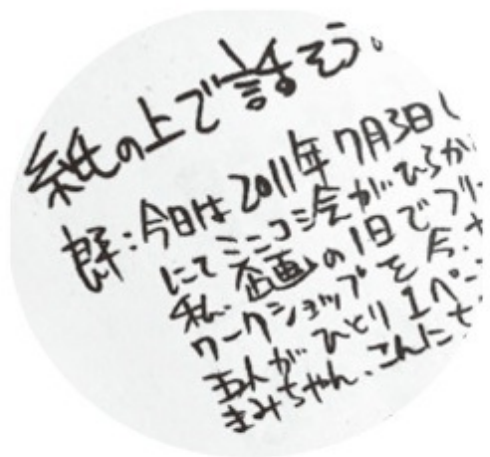 紙の上で話そう。
群:今日は2011年7月3日(
にてミニコミ会がひらか
私、企画の1日でフリ
ワークショップを今、
五人がひとり1ペー
まみちゃん、こんにち